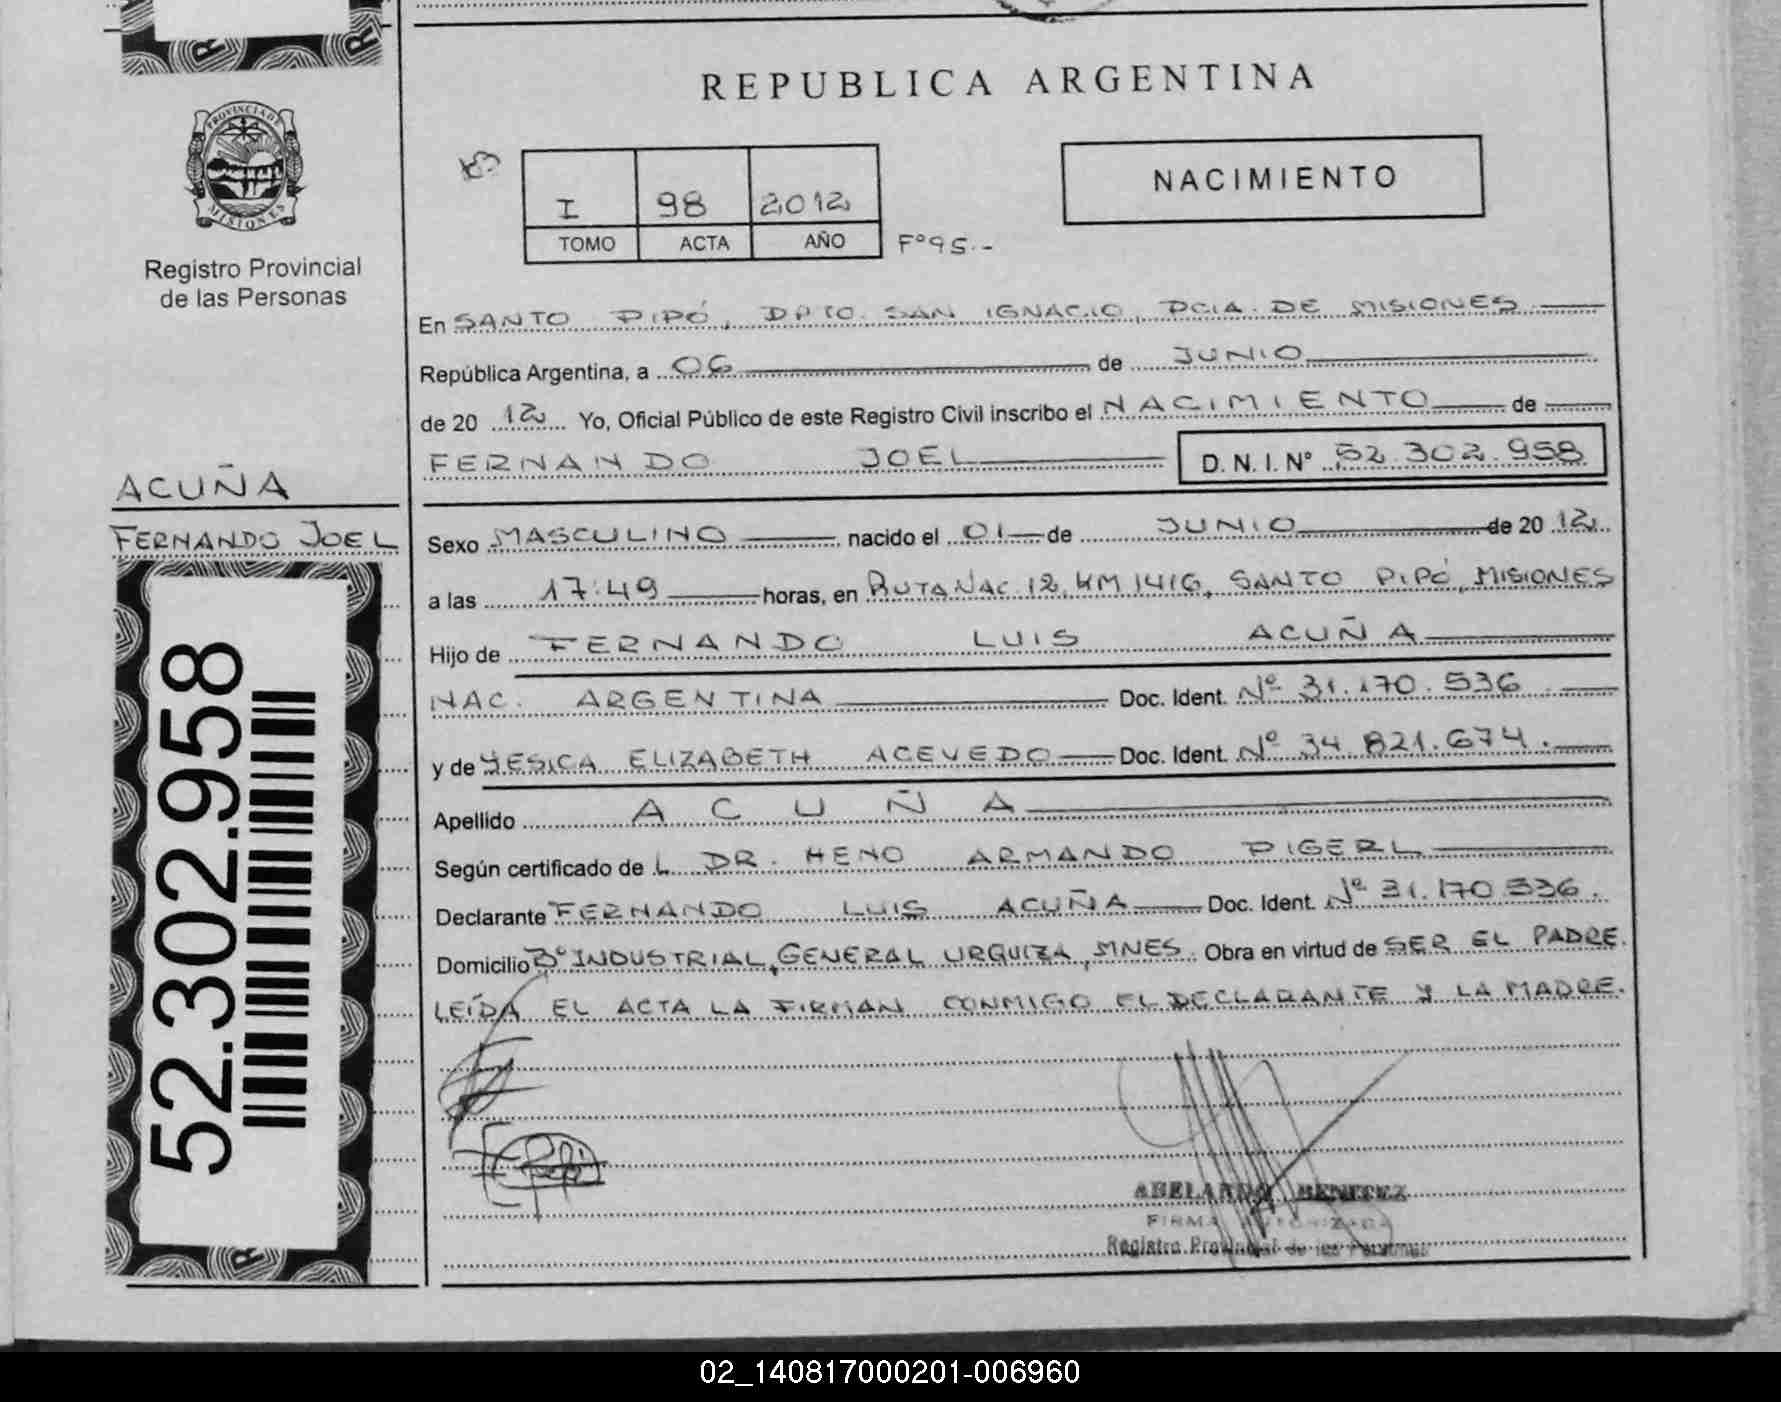 REPUBLICA ARGENTINA
PROVINCIA DE
MISIONES
Registro Provincial
de las Personas
I 98 2012
TOMO ACTA AÑO Fº95.-
NACIMIENTO
En SANTO PIPÓ, DPTO. SAN IGNACIO, PCIA. DE MISIONES
República Argentina, a 06 de JUNIO
de 20 12 Yo, Oficial Público de este Registro Civil inscribo el NACIMIENTO de
FERNANDO JOEL D. N. I. Nº 52.302.958
ACUÑA
FERNANDO JOEL
Sexo MASCULINO nacido el 01 de JUNIO de 20 12
a las 17:49 horas, en RUTA NAC. 12, KM 1416, SANTO PIPÓ, MISIONES
Hijo de FERNANDO LUIS ACUÑA
NAC. ARGENTINA Doc. Ident. Nº 31.170.536
y de YESICA ELIZABETH ACEVEDO Doc. Ident. Nº 34.821.674.
Apellido ACUÑA
Según certificado de L DR. HENO ARMANDO PIGERL
Declarante FERNANDO LUIS ACUÑA Doc. Ident. Nº 31.170.536.
Domicilio Bº INDUSTRIAL, GENERAL URQUIZA, MNES. Obra en virtud de SER EL PADRE.
LEÍDA EL ACTA LA FIRMAN CONMIGO EL DECLARANTE Y LA MADRE.
52.302.958
ABELARDO BENITEZ
FIRMA AUTORIZADA
Registro Provincial de las Personas
02_140817000201-006960